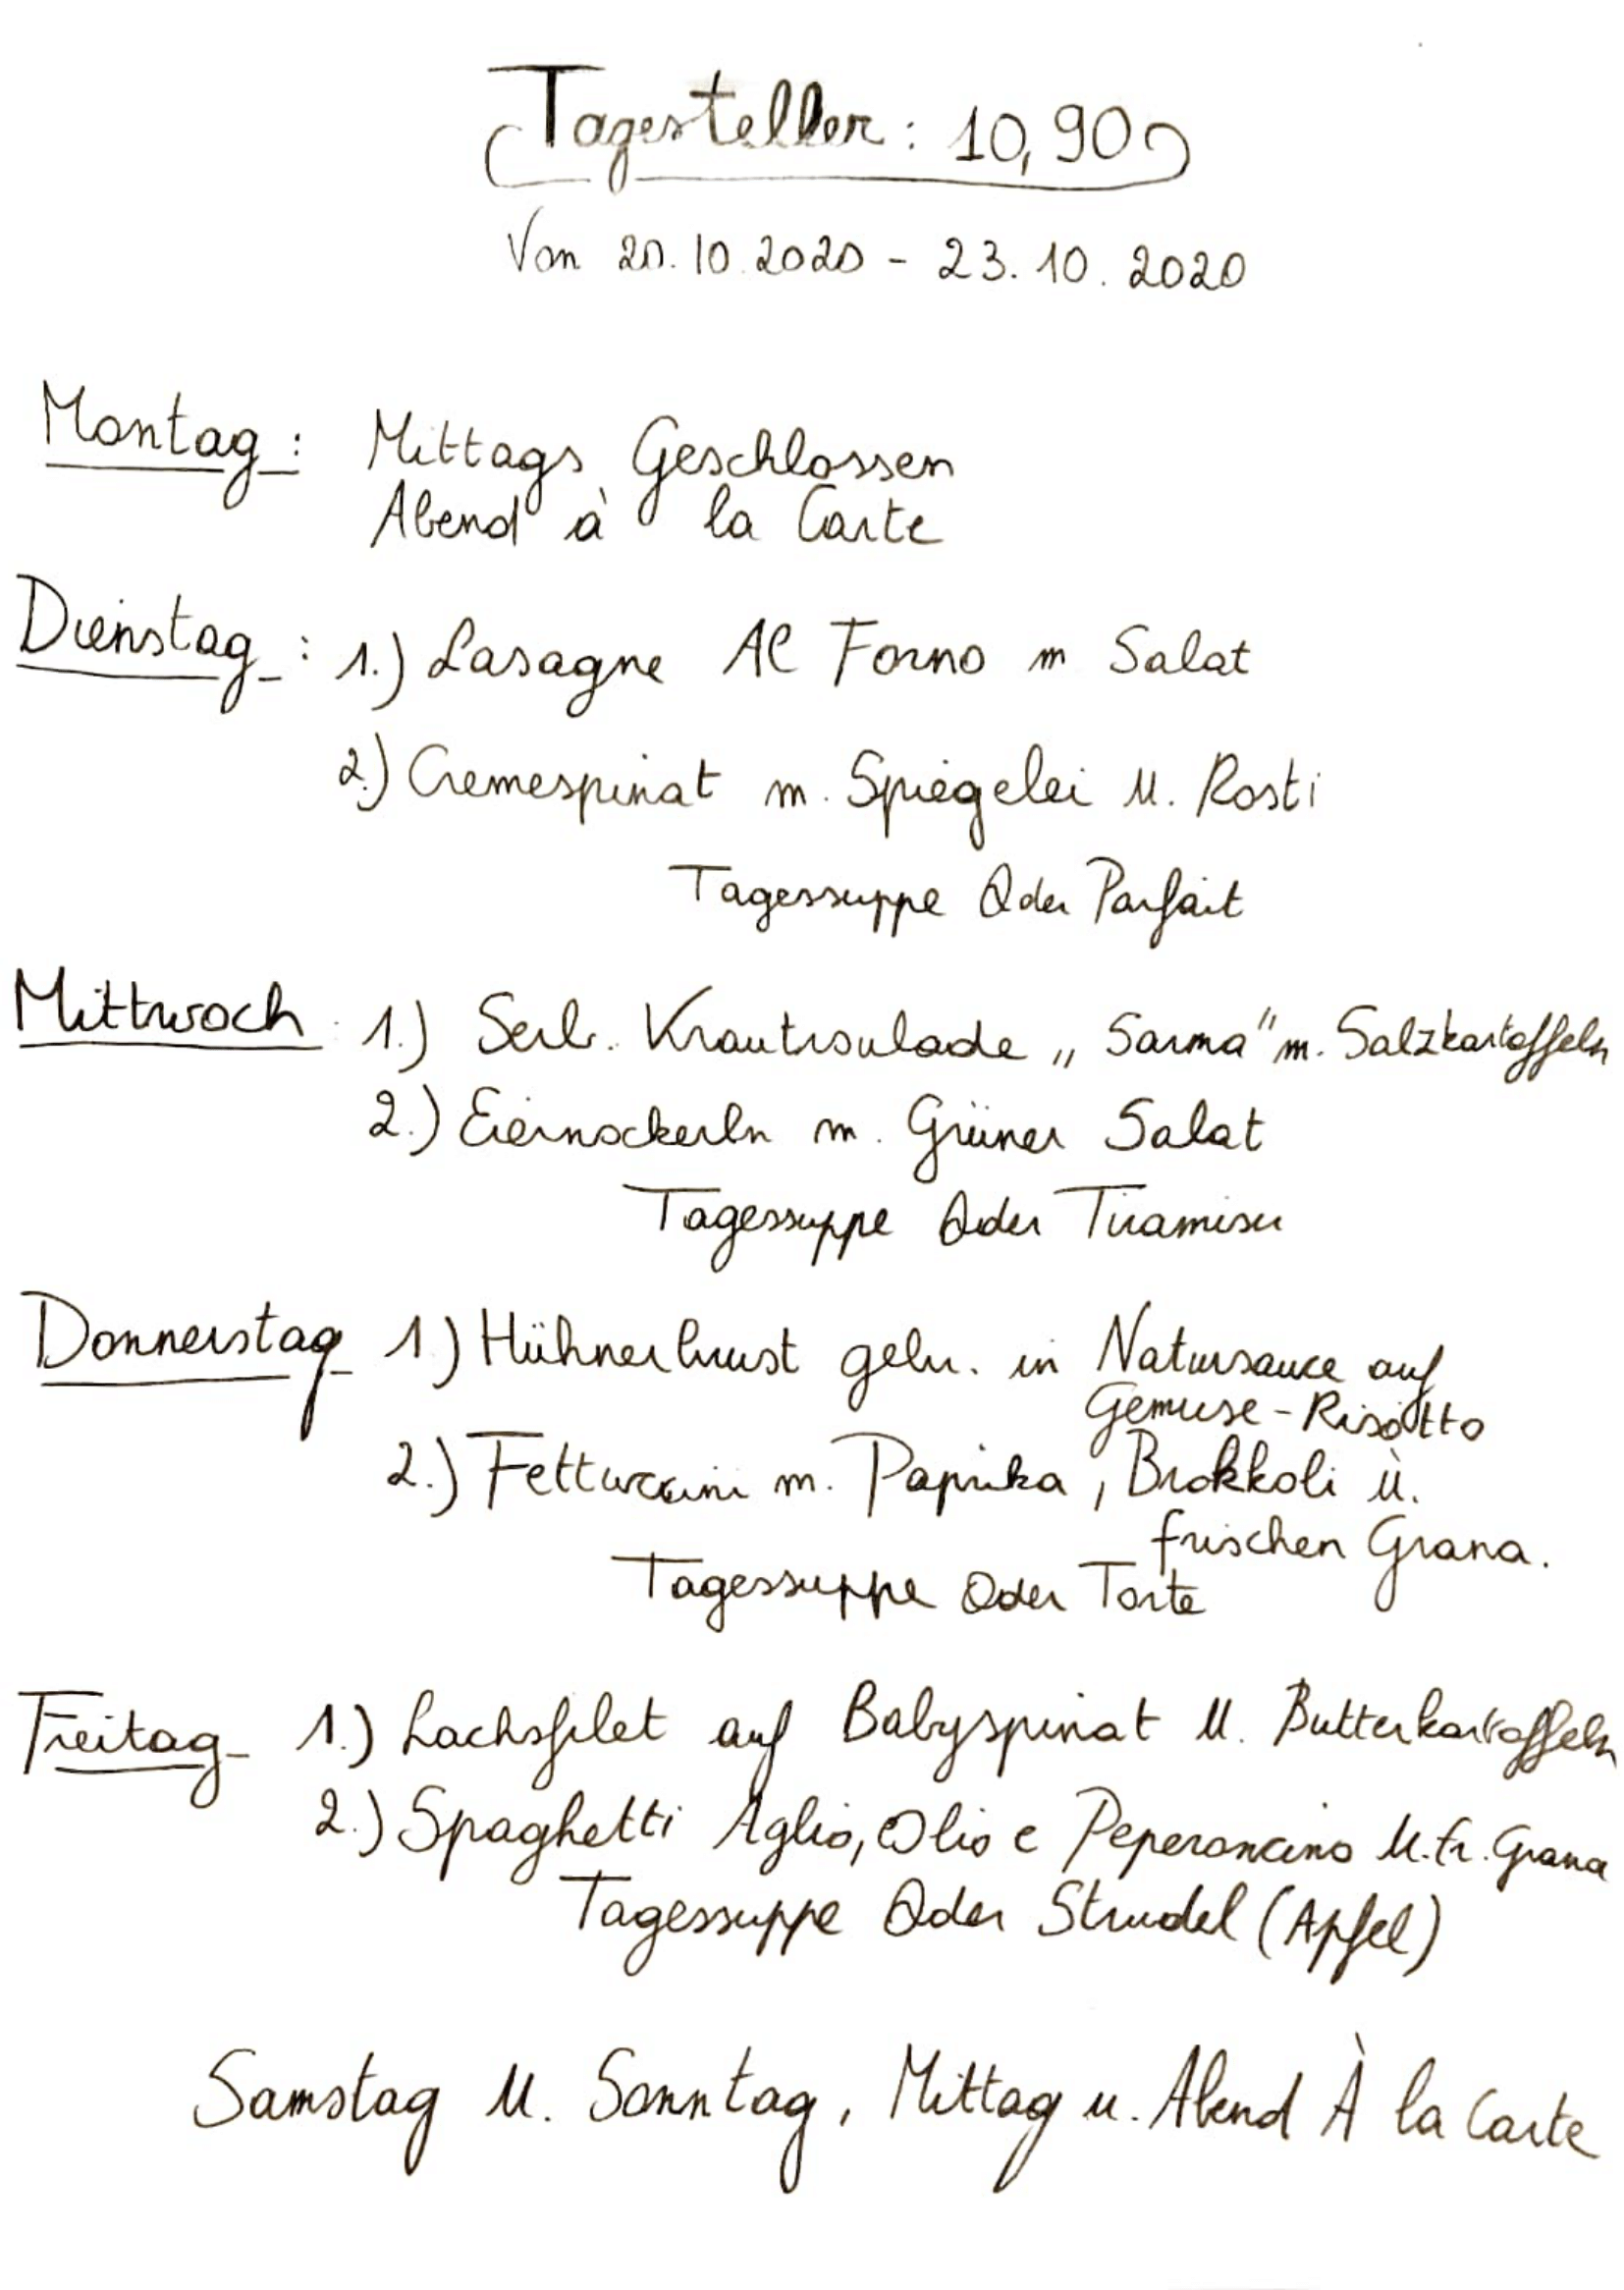 Tagesteller: 10,90
Von 20.10.2020 - 23.10.2020
Montag: Mittags Geschlossen
Abend à la Carte
Dienstag: 1.) Lasagne Al Forno m Salat
2.) Cremespinat m. Spiegelei u. Rosti
Tagessuppe Oder Parfait
Mittwoch: 1.) Serb. Krautroulade „Sarma" m. Salzkartoffeln
2.) Eiernockerln m. Grüner Salat
Tagessuppe Oder Tiramisu
Donnerstag 1.) Hühnerbrust gebr. in Natursauce auf
Gemuse-Risotto
2.) Fettuccini m. Paprika, Brokkoli ü.
frischen Grana.
Tagessuppe Oder Torte
Freitag 1.) Lachsfilet auf Babyspinat u. Butterkartoffeln
2.) Spaghetti Aglio, Olio e Peperoncino u. fr. Grana
Tagessuppe Oder Strudel (Apfel)
Samstag u. Sonntag, Mittag u. Abend À la Carte